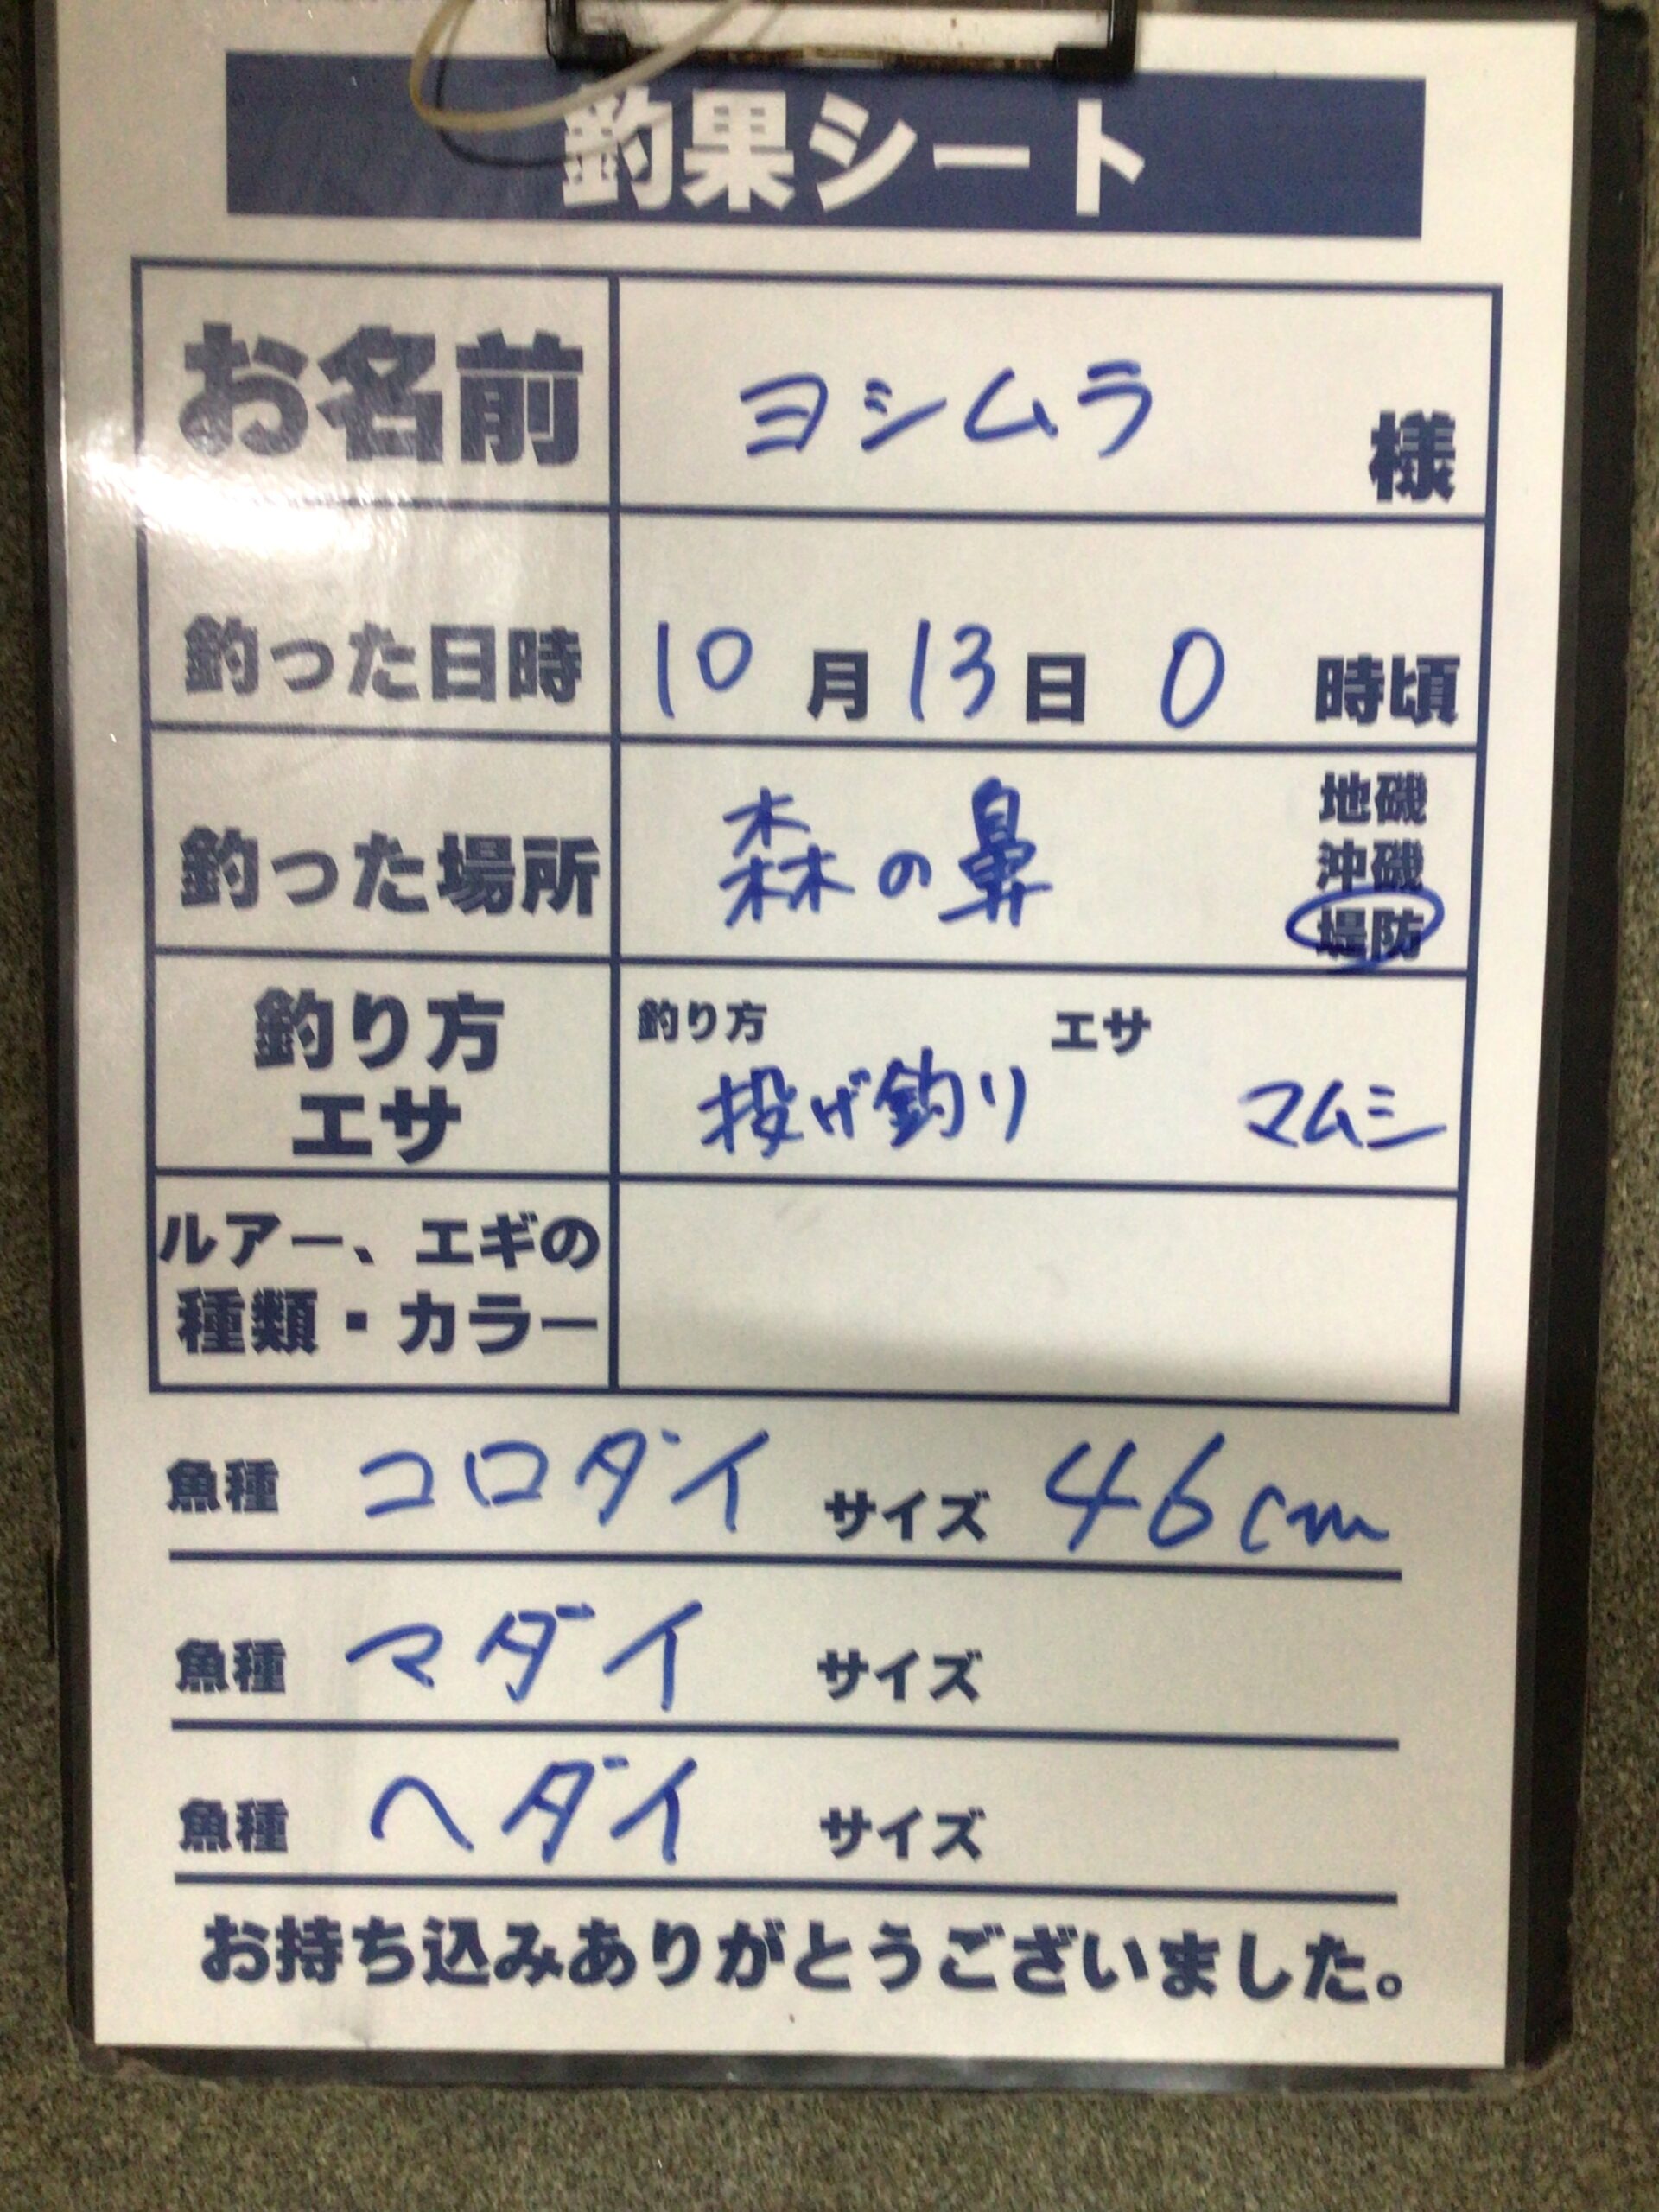 釣果シート
お名前 ヨシムラ 様
釣った日時 10月13日 0時頃
釣った場所 森の鼻 地磯 沖磯 堤防
釣り方 エサ 釣り方 投げ釣り エサ マムシ
ルアー、エギの
種類・カラー
魚種 コロダイ サイズ 46cm
魚種 マダイ サイズ
魚種 ヘダイ サイズ
お持ち込みありがとうございました。